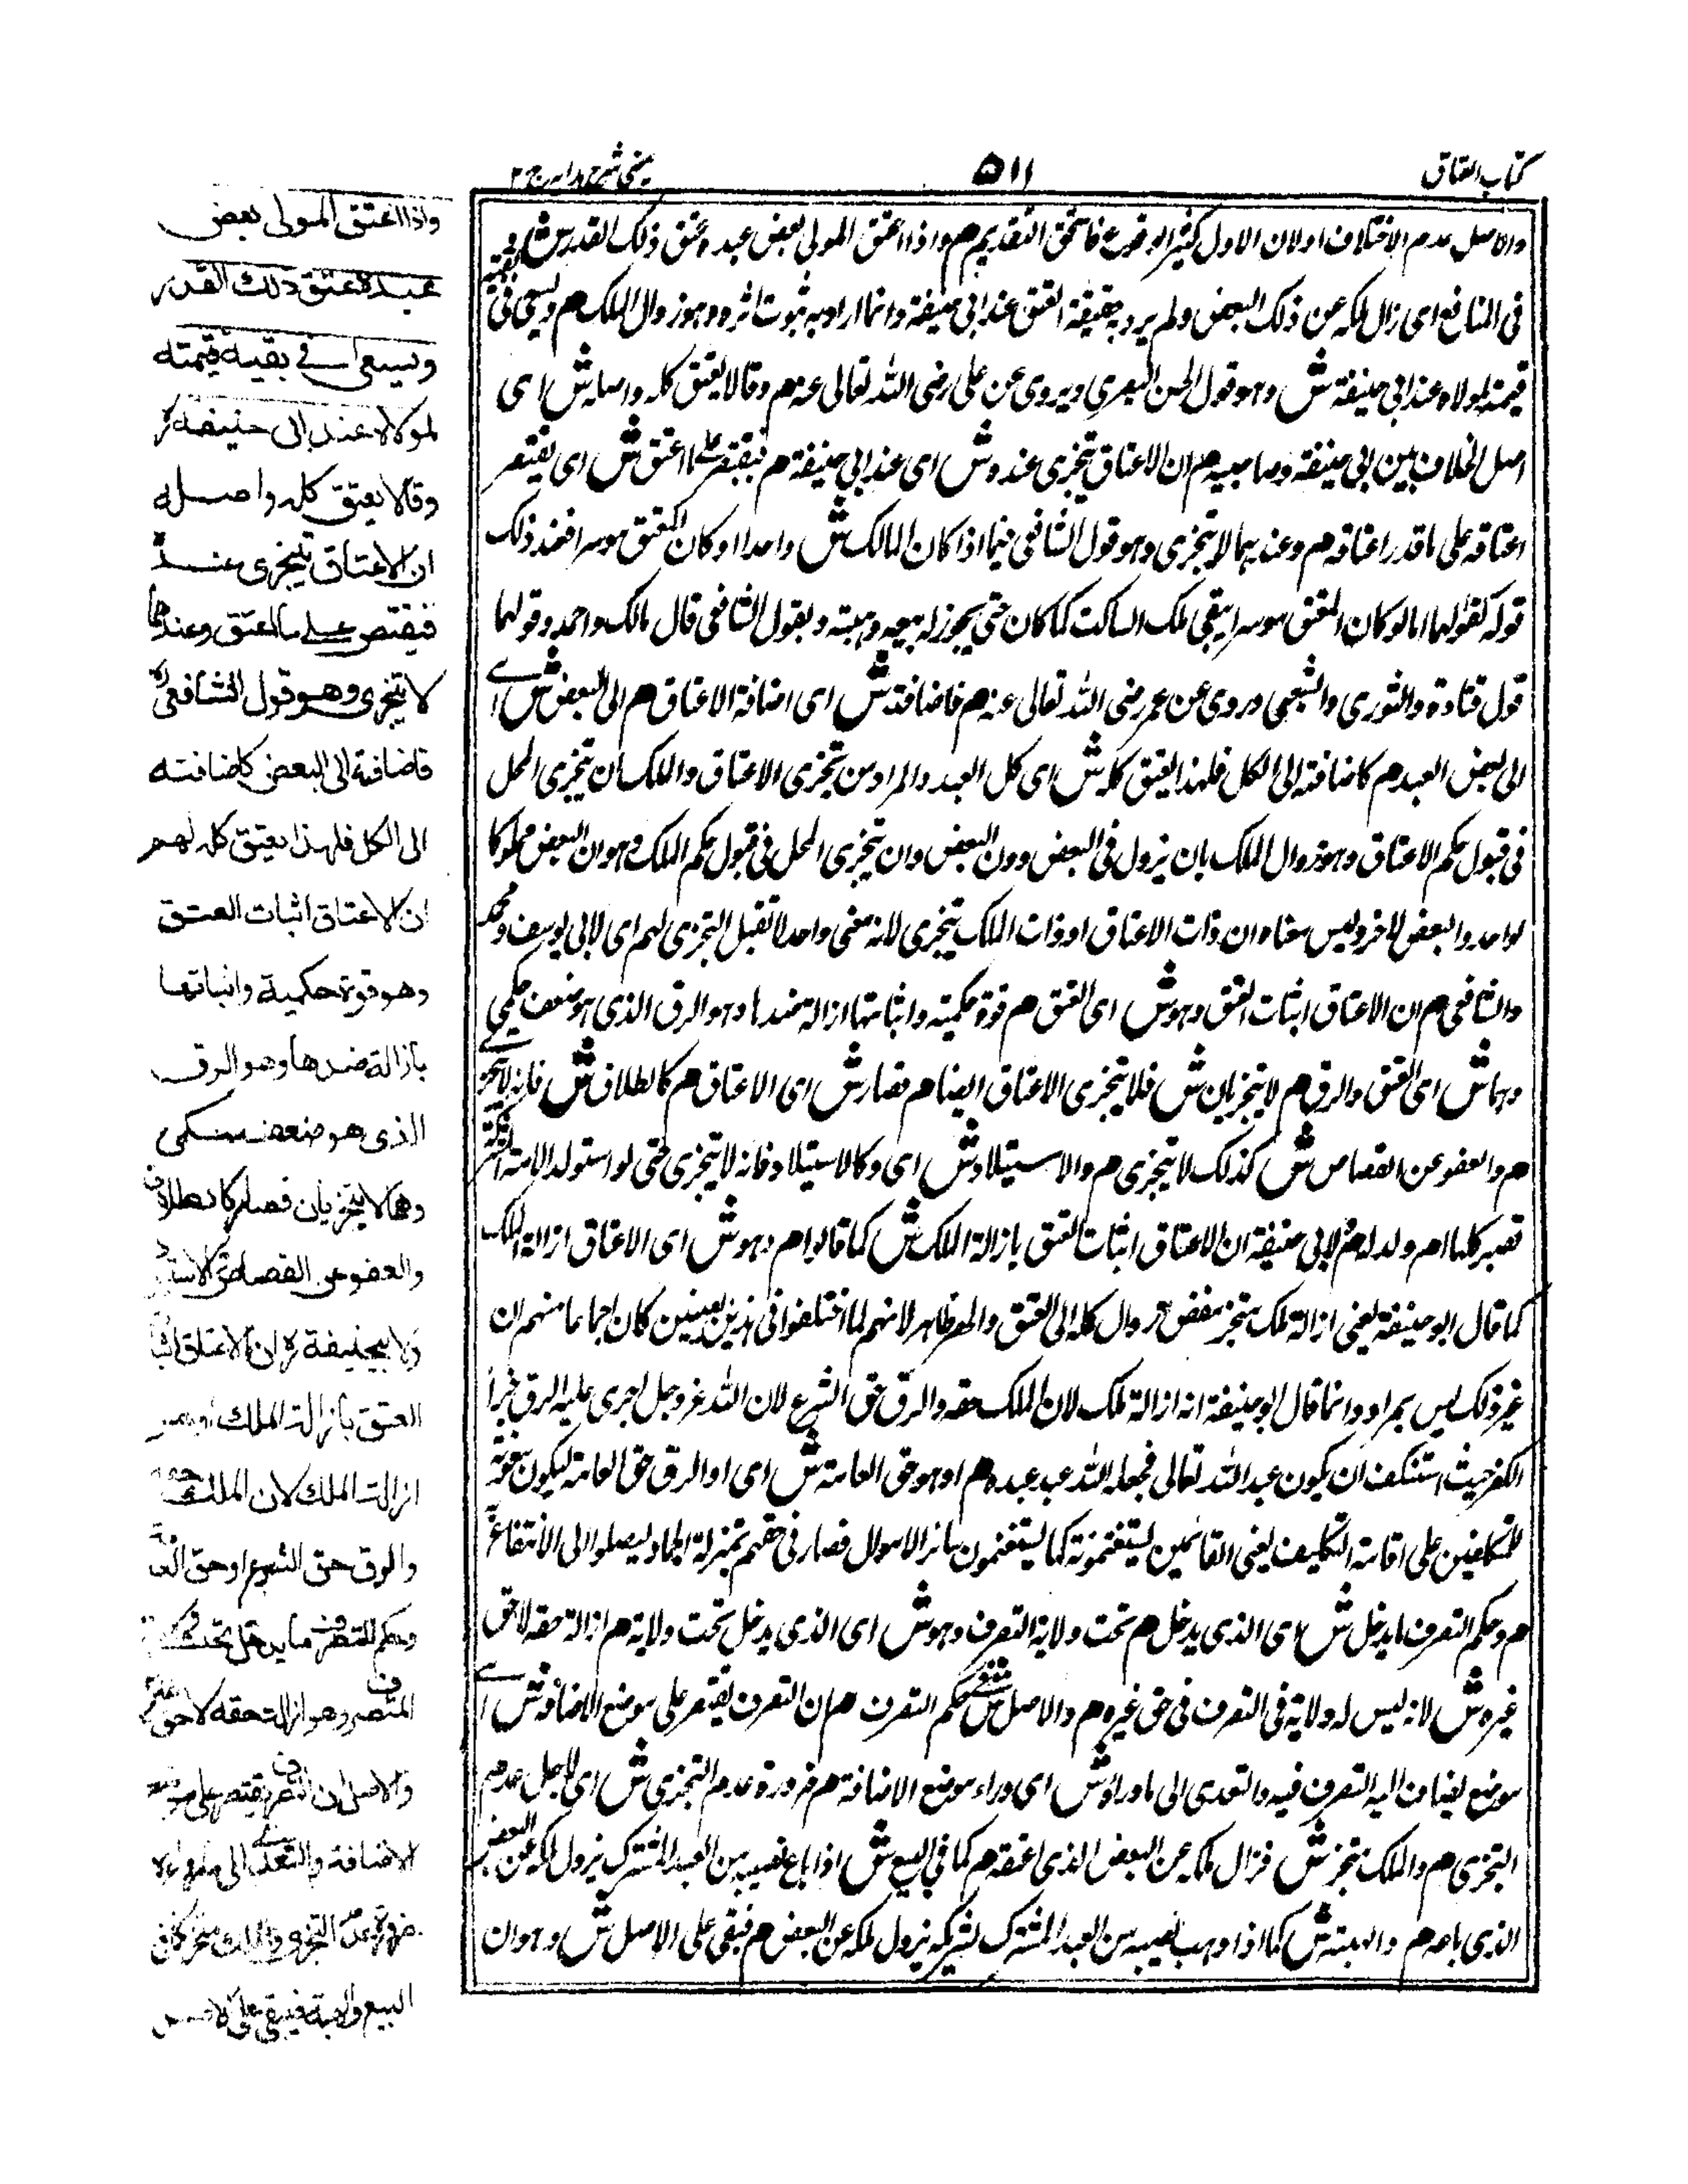 كتاب العتاق
٥١١
عينى شرح هدايه ج ٢
والاصل عدم الاختلاف اولان الاول كثير الوقوع فاستحق التقديم هم واذا اعتق المولى بعض عبده عتق ذلك القدر ش
فى المنافع اى زال ملكه عن ذلك البعض ولم يرد به حقيقة العتق عند ابى حنيفة وانما اراد به ثبوت اثره وهو زوال الملك هم ويسعى فى بقية
قيمته لمولاه عند ابى حنيفة ش وهو قول الحسن البصرى ويروى عن على رضى الله تعالى عنه هم وقالا يعتق كله واصله ش اى
اصل الخلاف بين ابى حنيفة وصاحبيه هم ان الاعتاق يتجزى عنده ش اى عند ابى حنيفة هم فيقتصر على ما اعتق ش اى يقتصر
اعتاقه على ما قدر اعتاقه هم وعندهما لا يتجزى وهو قول الشافعى فيما اذا كان المالك ش واحدا او كان المعتق موسرا فعند ذلك
قوله كقولهما اما لو كان المعتق موسرا يبقى ملك الساكت كما كان حتى يجوز له بيعه وهبته وبقول الشافعى قال مالك واحمد وقولهما
قول قتادة والثورى والشعبى وروى عن عمر رضى الله تعالى عنه هم فاضافته ش اى اضافة الاعتاق هم الى البعض ش اى
الى بعض العبد هم كاضافته الى الكل فلهذا يعتق كله ش اى كل العبد والمراد من تجزى الاعتاق والملك ان يتجزى المحل
فى قبول حكم الاعتاق وهو زوال الملك بان يزول فى البعض دون البعض وان يتجزى المحل فى قبول حكم الملك وهو ان البعض مملوكا
لواحد والبعض لاخر وليس معناه ان ذات الاعتاق او ذات الملك يتجزى لانه معنى واحد لا تقبل التجزى لهم اى لابى يوسف ومحمد
والشافعى هم ان الاعتاق اثبات العتق وهو ش اى العتق هم قوة حكمية واثباتها ازالة ضدها وهو الرق الذى هو ضعف حكمى
وهما ش اى العتق والرق هم لا يتجزيان ش فلا يتجزى الاعتاق ايضا هم فصار ش اى الاعتاق هم كالطلاق ش فانه لا يتجزى
هم والعفو عن القصاص ش كذلك لا يتجزى هم والاستيلاد ش اى وكالاستيلاد فانه لا يتجزى حتى لو استولد الامة المشتركة
تصير كلها ام ولد له هم ولابى حنيفة ان الاعتاق اثبات العتق بازالة الملك ش كما قالوا هم وهو ش اى الاعتاق ازالة الملك
كما قال ابو حنيفة يعنى ازالة ملك متجز كله الى العتق والحصر ظاهر لانهم لما اختلفوا فى هذين المعنيين كان اجماعا منهم ان
غير ذلك ليس بمراد وانما قال ابو حنيفة انه ازالة ملك لان الملك حقه والرق حق الشرع لان الله عز وجل اجرى عليه الرق جزاء
الكفر حيث استنكف ان يكون عبد الله تعالى فجعله الله عبد عبده هم او هو حق العامة ش اى او الرق حق العامة ليكون معونة
للمكلفين على اقامة التكليف يعنى القائمين ليستغنمونه كما يستغنمون سائر الاموال فصار فى حقهم بمنزلة الجماد ليصلوا الى الانتفاع به
هم وحكم التصرف ما يدخل ش اى الذى يدخل هم تحت ولاية التصرف وهو ش اى الذى يدخل تحت ولاية هم ازالة حقه لا حق
غيره ش لانه ليس له ولاية فى التصرف فى حق غيره هم والاصل ش حكم التصرف هم ان التصرف يقتصر على موضع الاضافة ش اى
موضع يضاف اليه التصرف فيه والتعدى الى ما وراءه ش اى وراء موضع الاضافة هم ضرورة عدم التجزى ش اى لاجل عدم
التجزى هم والملك متجز ش فزال ملكه عن البعض الذى اعتقه هم كما فى البيع ش اذا باع نصيبه من العبد المشترك يزول ملكه عن البعض
الذى باعه هم والهبة ش كما اذا وهب نصيبه من العبد المشترك لشريكه يزول ملكه عن البعض هم فبقى على الاصل ش وهو ان
واذا اعتق المولى بعض
عبده عتق ذلك القدر
ويسعى فى بقية قيمته
لمولاه عند ابى حنيفة رح
وقالا يعتق كله واصله
ان الاعتاق يتجزى عنده
فيقتصر على ما اعتق وعندهما
لا يتجزى وهو قول الشافعى رح
فاضافته الى البعض كاضافته
الى الكل فلهذا يعتق كله لهم
ان الاعتاق اثبات العتق
وهو قوة حكمية واثباتها
بازالة ضدها وهو الرق
الذى هو ضعف حكمى
وهما لا يتجزيان فصار كالطلاق
والعفو عن القصاص والاستيلاد
ولابى حنيفة رح ان الاعتاق اثبات
العتق بازالة الملك او هو
ازالة الملك لان الملك حقه
والرق حق الشرع او حق العامة
وحكم التصرف ما يدخل تحت ولاية
المتصرف وهو ازالة حقه لا حق غيره
والاصل ان التصرف يقتصر على موضع
الاضافة والتعدى الى ما وراءه
ضرورة عدم التجزى والملك متجز كما فى
البيع والهبة فيبقى على الاصل